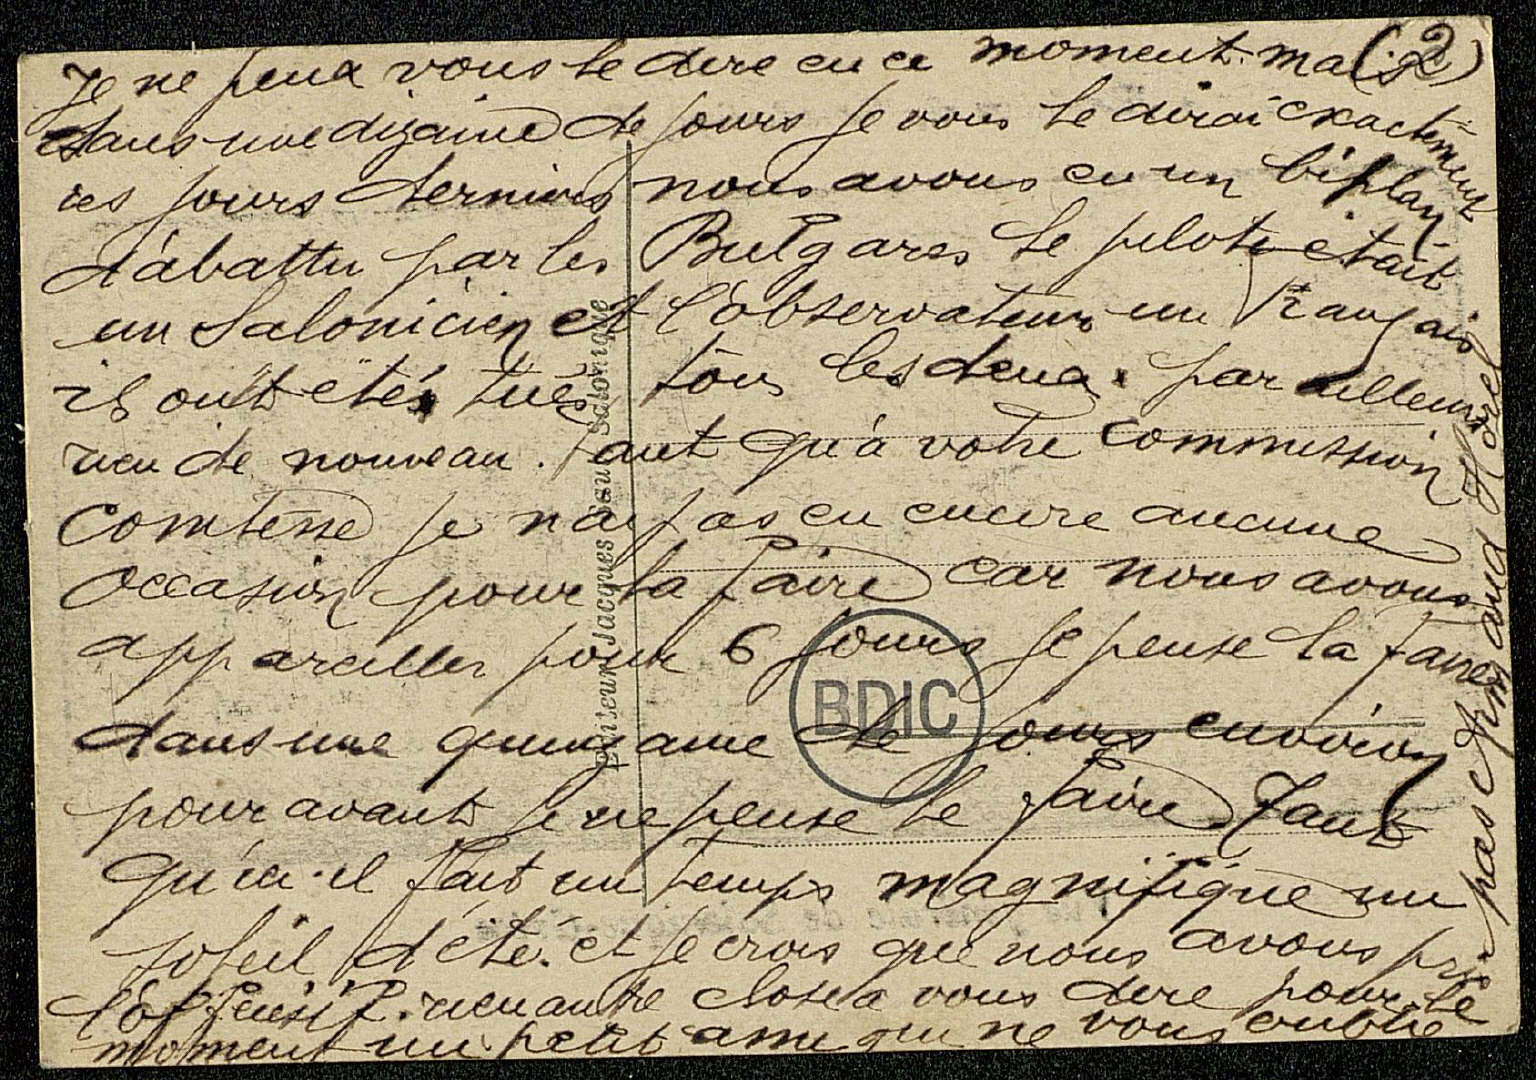 (2)
Je ne peux vous le dire en ce moment. mais
dans une dizaine de jours je vous le dirai exactement
ces jours derniers nous avons eu un biplan
d'abattu par les Bulgares le pilote était
un Salonicien et l'observateur un Français
ils ont étés tués tous les deux. par ailleurs
rien de nouveau. Tant qu'à votre commission
Comtesse je n'ai pas eu encore aucune
occasion pour la faire car nous avons
appareiller pour 6 jours je pense la faire
dans une quinzaine de jours environ
pour avant je ne pense le faire Tant
qu'ici il fait un temps magnifique un
soleil d'été. et je crois que nous avons pris
l'offensif. rien autre chose a vous dire pour le
moment un petit ami qui ne vous oublie
pas Armand Horel
Editeur Jacques Saul Salonique
BDIC